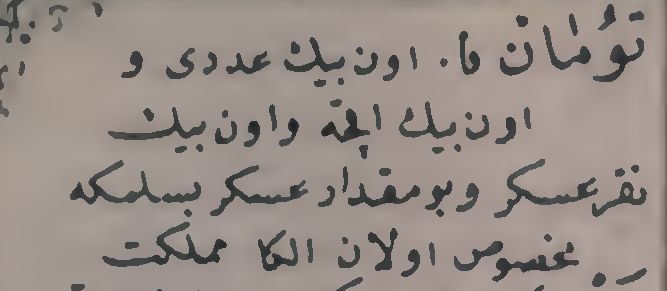 تؤمان فا. اون بيك عددى و
اون بيك اقچه و اون بيك
نفر عسكر و بو مقدار عسكر بسلمكه
مخصوص اولان الكا مملكت